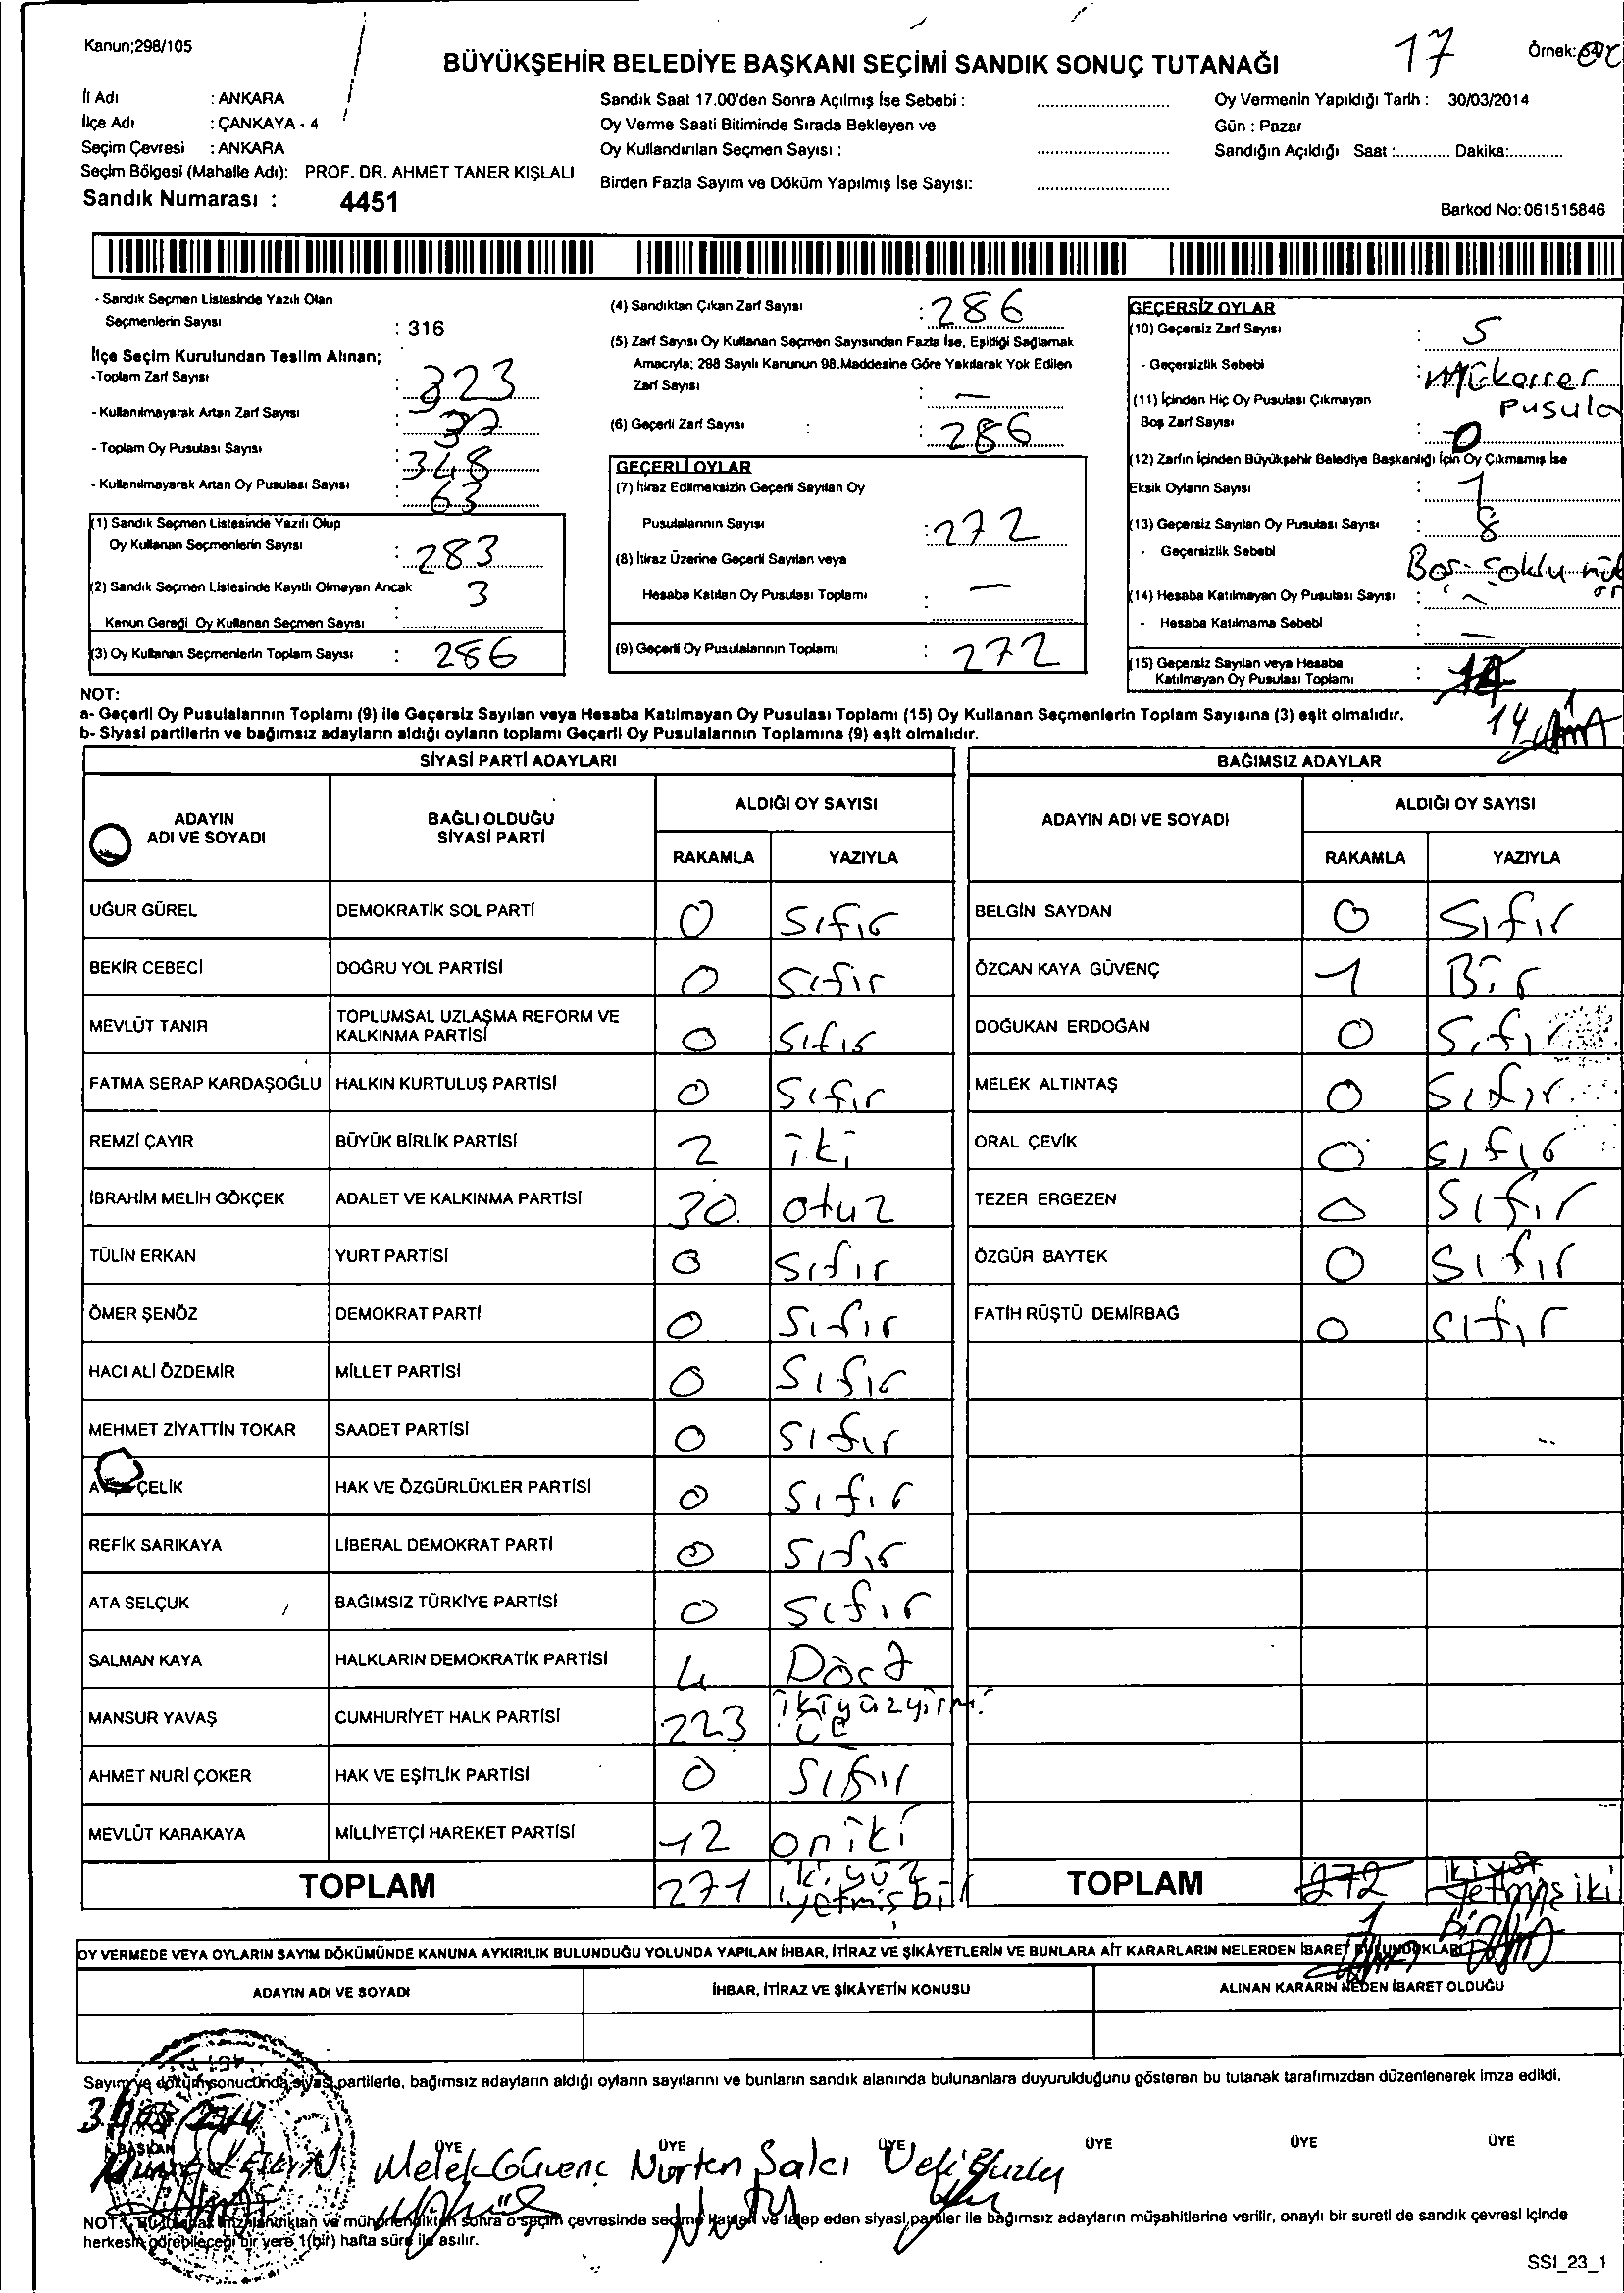 Kanun;298/105
BÜYÜKŞEHİR BELEDİYE BAŞKANI SEÇİMİ SANDIK SONUÇ TUTANAĞI
17
Örnek:
İl Adı : ANKARA
İlçe Adı : ÇANKAYA - 4
Seçim Çevresi : ANKARA
Seçim Bölgesi (Mahalle Adı): PROF. DR. AHMET TANER KIŞLALI
Sandık Numarası : 4451
Sandık Saat 17.00'den Sonra Açılmış İse Sebebi :
Oy Verme Saati Bitiminde Sırada Bekleyen ve
Oy Kullandırılan Seçmen Sayısı :
Birden Fazla Sayım ve Döküm Yapılmış İse Sayısı:
Oy Vermenin Yapıldığı Tarih : 30/03/2014
Gün : Pazar
Sandığın Açıldığı Saat :............ Dakika:............
Barkod No:061515846
- Sandık Seçmen Listesinde Yazılı Olan
Seçmenlerin Sayısı : 316
İlçe Seçim Kurulundan Teslim Alınan;
-Toplam Zarf Sayısı : 323
- Kullanılmayarak Artan Zarf Sayısı : 37
- Toplam Oy Pusulası Sayısı : 348
- Kullanılmayarak Artan Oy Pusulası Sayısı : 63
(1) Sandık Seçmen Listesinde Yazılı Olup
Oy Kullanan Seçmenlerin Sayısı : 283
(2) Sandık Seçmen Listesinde Kayıtlı Olmayan Ancak
Kanun Gereği Oy Kullanan Seçmen Sayısı : 3
(3) Oy Kullanan Seçmenlerin Toplam Sayısı : 286
(4) Sandıktan Çıkan Zarf Sayısı : 286
(5) Zarf Sayısı Oy Kullanan Seçmen Sayısından Fazla İse, Eşitliği Sağlamak
Amacıyla; 298 Sayılı Kanunun 98.Maddesine Göre Yakılarak Yok Edilen
Zarf Sayısı : —
(6) Geçerli Zarf Sayısı : : 286
GEÇERLİ OYLAR
(7) İtiraz Edilmeksizin Geçerli Sayılan Oy
Pusulalarının Sayısı : 272
(8) İtiraz Üzerine Geçerli Sayılan veya
Hesaba Katılan Oy Pusulası Toplamı : —
(9) Geçerli Oy Pusulalarının Toplamı : 272
GEÇERSİZ OYLAR
(10) Geçersiz Zarf Sayısı : 5
- Geçersizlik Sebebi : Mükerrer
pusula
(11) İçinden Hiç Oy Pusulası Çıkmayan
Boş Zarf Sayısı : 0
(12) Zarfın İçinden Büyükşehir Belediye Başkanlığı İçin Oy Çıkmamış İse
Eksik Oyların Sayısı : 1
(13) Geçersiz Sayılan Oy Pusulası Sayısı : 8
- Geçersizlik Sebebi
Boş
(14) Hesaba Katılmayan Oy Pusulası Sayısı : —
- Hesaba Katılmama Sebebi : —
(15) Geçersiz Sayılan veya Hesaba
Katılmayan Oy Pusulası Toplamı : 14
14
NOT:
a- Geçerli Oy Pusulalarının Toplamı (9) ile Geçersiz Sayılan veya Hesaba Katılmayan Oy Pusulası Toplamı (15) Oy Kullanan Seçmenlerin Toplam Sayısına (3) eşit olmalıdır.
b- Siyasi partilerin ve bağımsız adayların aldığı oyların toplamı Geçerli Oy Pusulalarının Toplamına (9) eşit olmalıdır.
SİYASİ PARTİ ADAYLARI BAĞIMSIZ ADAYLAR
ADAYIN ADI VE SOYADI BAĞLI OLDUĞU SİYASİ PARTİ ALDIĞI OY SAYISI ADAYIN ADI VE SOYADI ALDIĞI OY SAYISI
RAKAMLA YAZIYLA RAKAMLA YAZIYLA
UĞUR GÜREL DEMOKRATİK SOL PARTİ 0 Sıfır BELGİN SAYDAN 0 Sıfır
BEKİR CEBECİ DOĞRU YOL PARTİSİ 0 Sıfır ÖZCAN KAYA GÜVENÇ 1 Bir
MEVLÜT TANIR TOPLUMSAL UZLAŞMA REFORM VE KALKINMA PARTİSİ 0 Sıfır DOĞUKAN ERDOĞAN 0 Sıfır
FATMA SERAP KARDAŞOĞLU HALKIN KURTULUŞ PARTİSİ 0 Sıfır MELEK ALTINTAŞ 0 Sıfır
REMZİ ÇAYIR BÜYÜK BİRLİK PARTİSİ 2 iki ORAL ÇEVİK 0 Sıfır
İBRAHİM MELİH GÖKÇEK ADALET VE KALKINMA PARTİSİ 30 otuz TEZER ERGEZEN 0 Sıfır
TÜLİN ERKAN YURT PARTİSİ 0 Sıfır ÖZGÜR BAYTEK 0 Sıfır
ÖMER ŞENÖZ DEMOKRAT PARTİ 0 Sıfır FATİH RÜŞTÜ DEMİRBAĞ 0 Sıfır
HACI ALİ ÖZDEMİR MİLLET PARTİSİ 0 Sıfır
MEHMET ZİYATTİN TOKAR SAADET PARTİSİ 0 Sıfır
ÇELİK HAK VE ÖZGÜRLÜKLER PARTİSİ 0 Sıfır
REFİK SARIKAYA LİBERAL DEMOKRAT PARTİ 0 Sıfır
ATA SELÇUK BAĞIMSIZ TÜRKİYE PARTİSİ 0 Sıfır
SALMAN KAYA HALKLARIN DEMOKRATİK PARTİSİ 4 Dört
MANSUR YAVAŞ CUMHURİYET HALK PARTİSİ 223 ikiyüzyirmi üç
AHMET NURİ ÇOKER HAK VE EŞİTLİK PARTİSİ 0 Sıfır
MEVLÜT KARAKAYA MİLLİYETÇİ HAREKET PARTİSİ 12 oniki
TOPLAM 271 ikiyüz yetmişbir TOPLAM 272 ikiyüz yetmiş iki
1 Bir
OY VERMEDE VEYA OYLARIN SAYIM DÖKÜMÜNDE KANUNA AYKIRILIK BULUNDUĞU YOLUNDA YAPILAN İHBAR, İTİRAZ VE ŞİKÂYETLERİN VE BUNLARA AİT KARARLARIN NELERDEN İBARET BULUNDUKLARI
ADAYIN ADI VE SOYADI İHBAR, İTİRAZ VE ŞİKÂYETİN KONUSU ALINAN KARARIN NEDEN İBARET OLDUĞU
Sayım ve döküm sonucunda, siyasi partilerle, bağımsız adayların aldığı oyların sayılarını ve bunların sandık alanında bulunanlara duyurulduğunu gösteren bu tutanak tarafımızdan düzenlenerek imza edildi.
BAŞKAN ÜYE ÜYE ÜYE ÜYE ÜYE ÜYE
Melek Güvenç Nurten Salcı Veli
NOT: Bu tutanak imzalandıktan ve mühürlendikten sonra o seçim çevresinde seçime katılan ve talep eden siyasi partiler ile bağımsız adayların müşahitlerine verilir, onaylı bir sureti de sandık çevresi içinde
herkesin görebileceği bir yere 1(bir) hafta süre ile asılır.
SSI_23_1